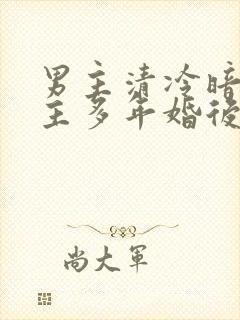 男主清冷暗
主多年婚後
尚大軍